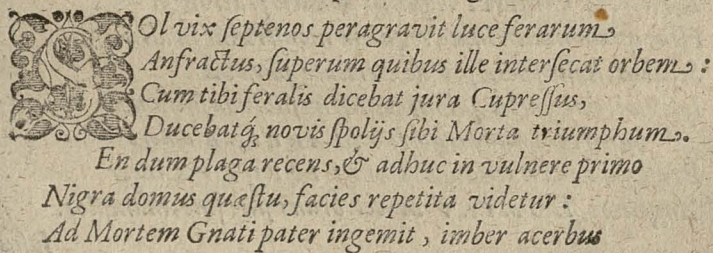 SOl vix ſeptenos peragravit luce ferarum
Anfractus, ſuperum quibus ille interſecat orbem :
Cum tibi feralis dicebat jura Cupreſſus,
Ducebatq́; novis ſpolijs ſibi Morta triumphum.
En dum plaga recens, & adhuc in vulnere primo
Nigra domus quæſtu, facies repetita videtur :
Ad Mortem Gnati pater ingemit , imber acerbus